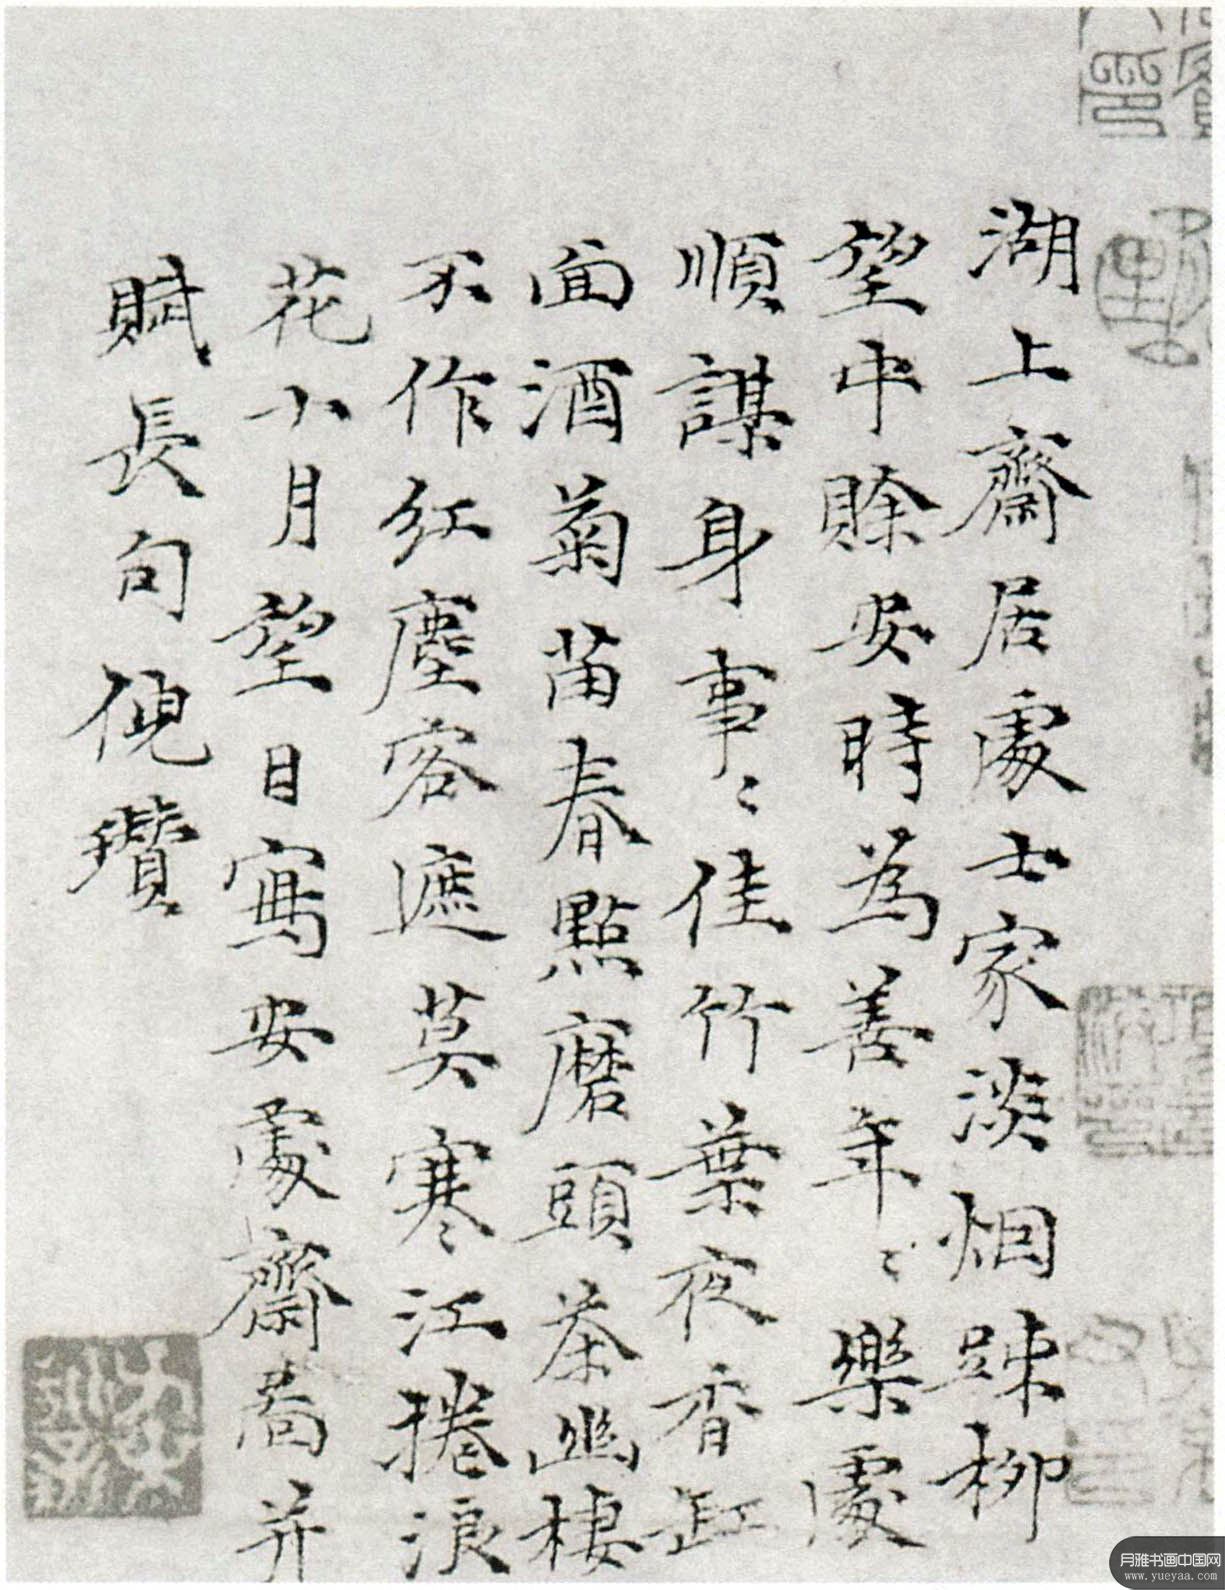 湖上齋居處士家淡烟踈柳
望中賒安時為善年〻樂處
順謀身事〻佳竹葉夜香缸
面酒菊苗春點磨頭茶幽棲
不作紅塵客遮莫寒江捲浪
花十月望日寫安處齋啚并
賦長句倪瓚
月雅书画中国网
www.yueyaa.com